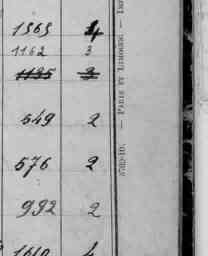 1368 4
1162 3
1135 3
549 2
576 2
992 2
1660 4
— PARIS ET LIMOGES. —